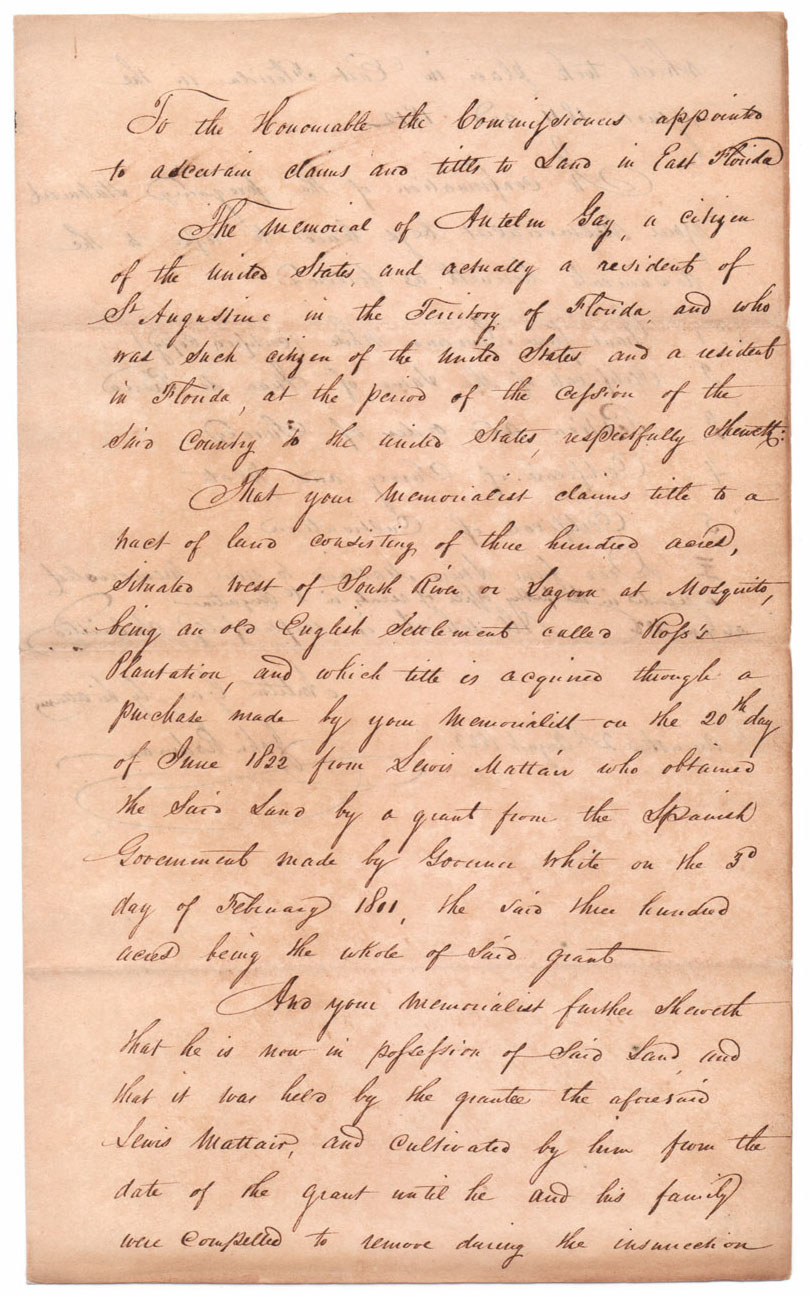 To the Honourable the Commissioners appointed
to ascertain claims and titles to Land in East Florida
The memorial of Antelm Gay, a citizen
of the United States, and actually a resident of
St Augustine in the Territory of Florida, and who
was such citizen of the United States and a resident
in Florida, at the period of the cession of the
Said Country to the United States, respectfully Sheweth:
That your memorialist claims title to a
tract of land consisting of three hundred acres,
situated west of South River or Lagoon at Mosquito,
being an old English Settlement called Ross's
Plantation, and which title is acquired through a
purchase made by your memorialist on the 20th day
of June 1822 from Lewis Mattair who obtained
the Said Land by a grant from the Spanish
Government made by Governor White on the 3d
day of February 1801, the said three hundred
acres being the whole of Said grant
And your memorialist further Sheweth
that he is now in possession of Said Land, and
that it was held by the grantee the aforesaid
Lewis Mattair, and cultivated by him from the
date of the grant until he and his family
were compelled to remove during the insurrection